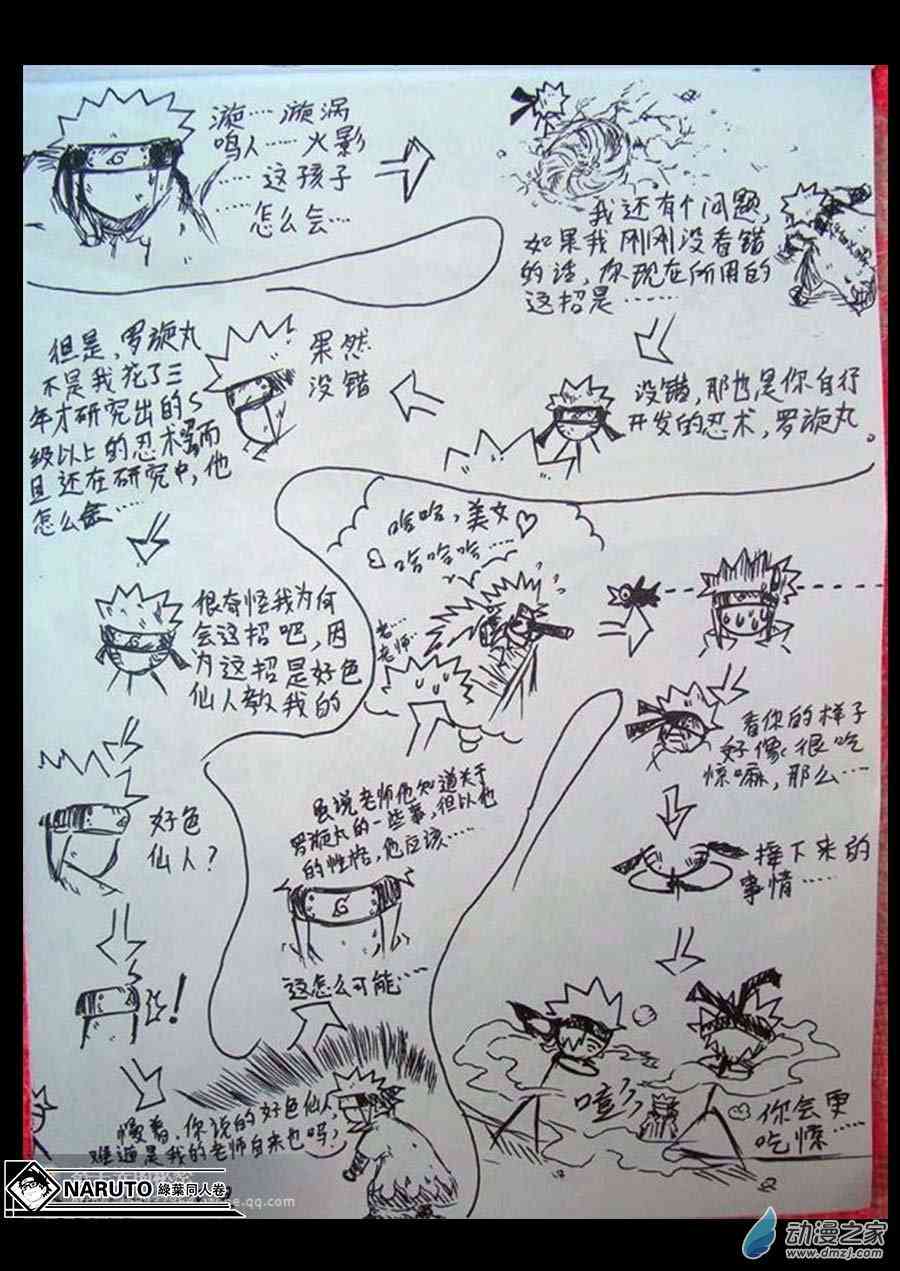 漩……漩涡
鸣人……火影
……这孩子
怎么会……
我还有个问题,
如果我刚刚没看错
的话,你现在所用的
这招是……
没错,那也是你自行
开发的忍术,罗旋丸。
果然
没错
但是,罗旋丸
不是我花了三
年才研究出的S
级以上的忍术吗而
且还在研究中,他
怎么会……
很奇怪我为何
会这招吧,因
为这招是好色
仙人教我的
好色
仙人?
!
慢着,你说的好色仙人,
难道是我的老师自来也吗?
这怎么可能……
虽说老师他知道关于
罗旋丸的一些事,但以他
的性格,他应该……
哈哈,美女
哈哈哈……
老……
老师……
看你的样子
好像很吃
惊嘛,那么……
接下来的
事情……
嘭
你会更
吃惊
NARUTO 綠葉同人卷
e.qq.com
动漫之家
www.dmzj.com